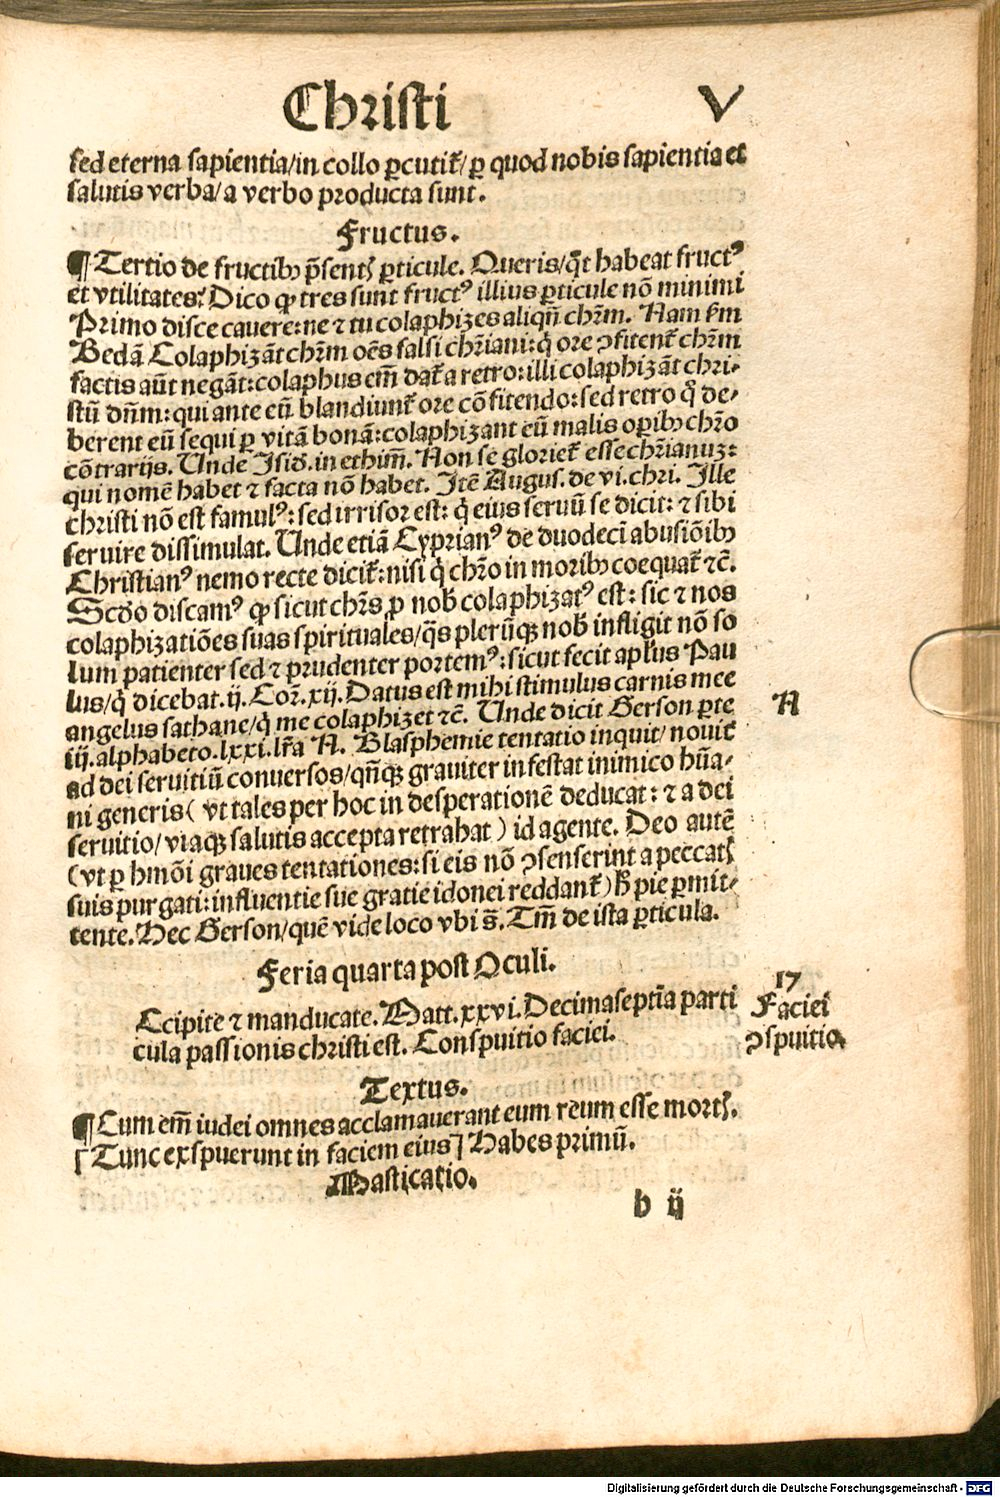 Christi V
sed eterna sapientia/in collo ꝑcutit᷑/ꝑ quod nobis sapientia et
salutis verba/a verbo producta sunt.
Fructus.
¶ Tertio de fructibꝫ p̄sentꝭ ꝑticule. Queris/q̄t habeat fructꝰ
et vtilitates? Dico ꝙ tres sunt fructꝰ illius ꝑticule nō minimi
Primo disce cauere: ne ⁊ tu colaphizes aliqn̄ chr̄m. Nam ẜm
Bedā Colaphizāt chr̄m oēs falsi chr̄iani: q̇ ore ꝯfitent᷑ chr̄m
factis aūt negāt: colaphus em̄ dat᷑ a retro: illi colaphizāt chri-
stū dn̄m: qui ante eū blandiunt᷑ ore cōfitendo: sed retro q̇ de-
berent eū sequi ꝑ vitā bonā: colaphizant eū malis oꝑibꝫ chr̄o
cōtrarijs. Unde Isid. in ethim̄. Non se gloriet᷑ esse chr̄ianuꝫ:
qui nomē habet ⁊ facta nō habet. Itē Augus. de vi. chri. Ille
christi nō est famulꝰ: sed irrisor est: q̇ eius seruū se dicit: ⁊ sibi
seruire dissimulat. Unde etiā Cyprianꝰ de duodeci abusiōibꝫ
Christianꝰ nemo recte dicit᷑: nisi q̇ chr̄o in moribꝫ coequat᷑ ⁊c̄.
Scd̄o discamꝰ ꝙ sicut chr̄s ꝓ nob̄ colaphizatꝰ est: sic ⁊ nos
colaphizatiōes suas spirituales/q̄s plerūqꝫ nob̄ infligit nō so
lum patienter sed ⁊ prudenter portemꝰ: sicut fecit apl̄us Pau
lus/q̇ dicebat. ij. Cor̄. xij. Datus est mihi stimulus carnis mee
angelus sathane/q̇ me colaphizet ⁊c̄. Unde dicit Gerson ꝑte
iij. alphabeto. lxxi. lr̄a A. Blasphemie tentatio inquit/nouit᷑
A
ad dei seruitiū conuersos/qn̄qꝫ grauiter infestat inimico hūa-
ni generis (vt tales per hoc in desperationē deducat: ⁊ a dei
seruitio/viaqꝫ salutis accepta retrahat) id agente. Deo autē
(vt ꝑ hmōi graues tentationes: si eis nō ꝯsenserint a peccatꝭ
suis purgati: influentie sue gratie idonei reddant᷑) h̄ pie ꝑmit-
tente. Hec Gerson/quē vide loco vbi s̄. Tm̄ de ista ꝑticula.
Feria quarta post Oculi.
Ccipite ⁊ manducate. Matt. xxvi. Decimaseptīa parti
cula passionis christi est. Conspuitio faciei.
17
Faciei
ꝯspuitio.
Textus.
¶ Cum em̄ iudei omnes acclamauerant eum reum esse mortꝭ.
[Tunc exspuerunt in faciem eius] Habes primū.
Masticatio.
b ij
Digitalisierung gefördert durch die Deutsche Forschungsgemeinschaft - DFG